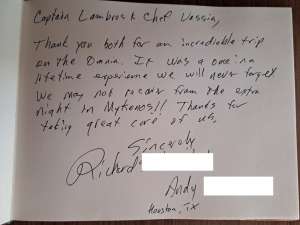 Captain Lambros & Chef Vassia,
Thank you both for an incrediable trip
on the Oania. It was a once in a
lifetime experience we will never forget.
We may not recover from the extra
night in Mykonos!! Thanks for
taking great care of us.
Sincerely
Richard
Andy
Houston, TX